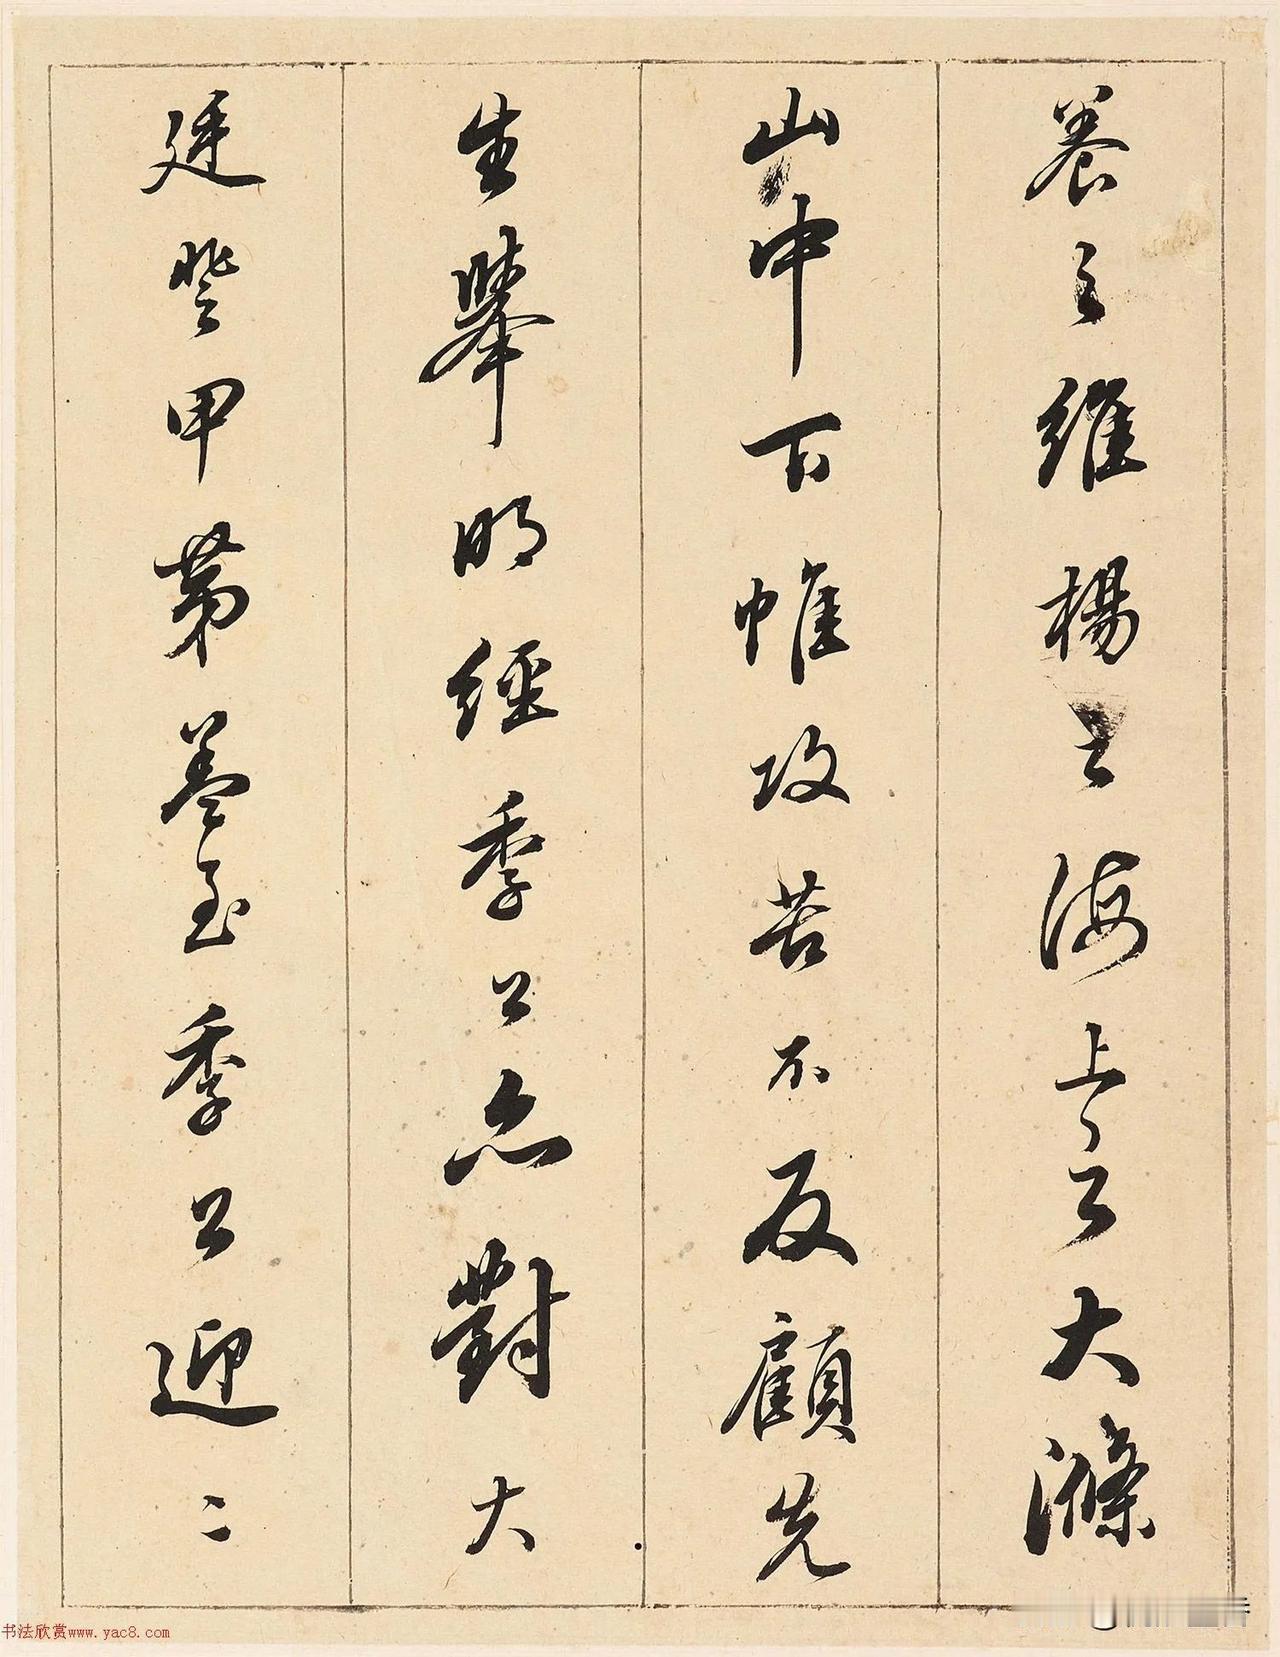 養之維楊之海上之大滌
山中下帷攻苦不反顧先
生舉明經季公亦對大
廷登甲第蓋至季公迎二
书法欣赏www.yac8.com